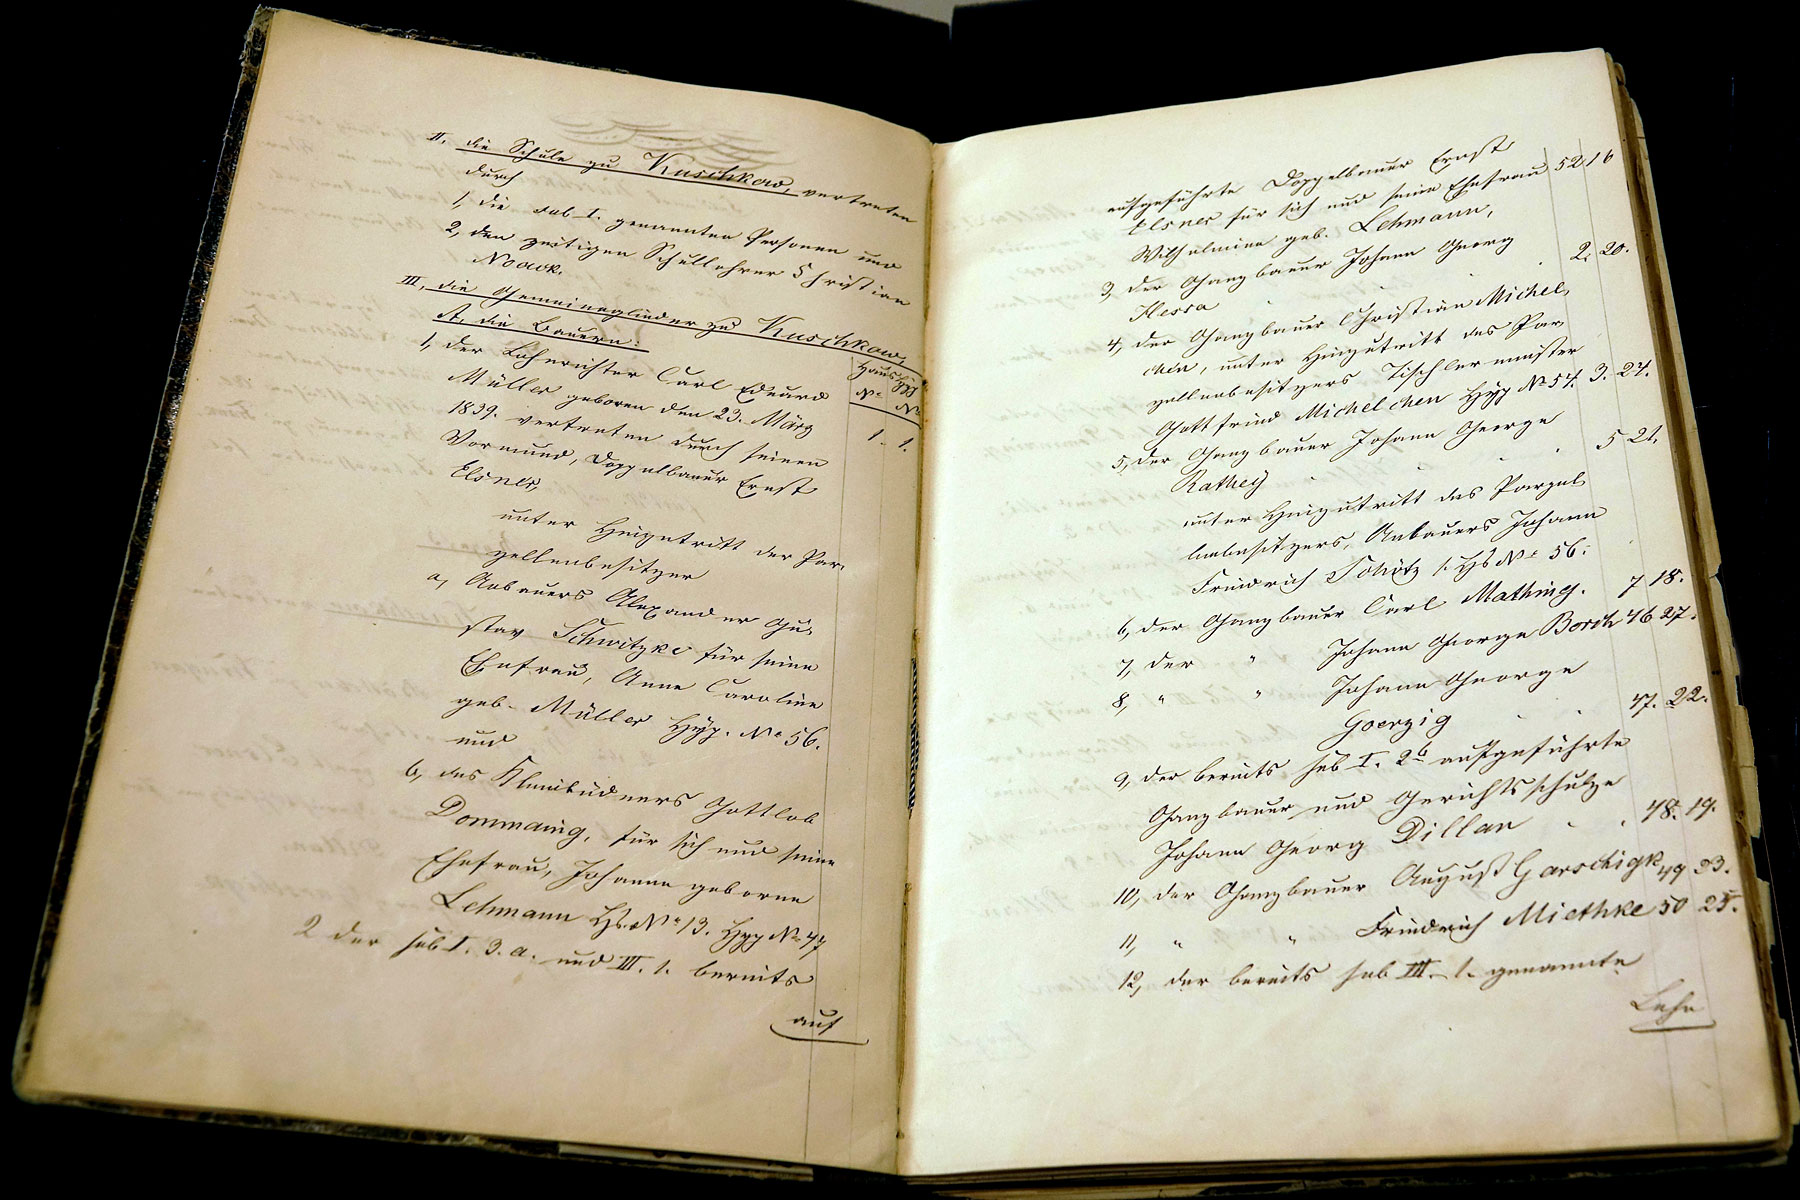 II. die Schule zu Kuschkow, vertreten
durch
1, die sub I. genannten Personen und
2, den zeitigen Schullehrer Christian
Noack.
III. die Gemeineglieder zu Kuschkow,
A, die Bauern:
Haus Hyp
No No
1, der Lehnrichter Carl Eduard
Müller geboren den 23. März
1839. vertreten durch seinen 1. 1.
Vormund, Doppelbauer Ernst
Elsner,
unter Hinzutritt der Par-
zellenbesitzer
a, Anbauers Alexander Gu-
stav Schwitzke für seine
Ehefrau, Anna Caroline
geb. Müller Hyp. No 56.
und
b, des Kleinbüdners Gottlob
Dommaing, für sich und seine
Ehefrau, Johanna geborne
Lehmann Hs. No 13. Hyp No 47
2 der sub I. 3. a. und III. 1. bereits
auf
aufgeführte Doppelbauer Ernst
Elsner für sich und seine Ehefrau 52 16
Wilhelmine geb. Lehmann,
3, der Ganzbauer Johann Georg
Hessa 2. 20.
4, der Ganzbauer Christian Michel
chen, unter Hinzutritt des Par-
zellenbesitzers Tischlermeister
Gottfried Michelchen Hyp No 54. 3. 24.
5, der Ganzbauer Johann George
Rathey 5 21.
unter Hinzutritt des Parzel
lenbesitzers, Anbauers Johann
Friedrich Hs No 56.
6, der Ganzbauer Carl Mathing. 7 18.
7, der " Johann George Borch 46 27.
8, " " Johann George
Goerzig 47. 22.
9, der bereits sub I. 2b aufgeführte
Ganzbauer und Gerichtsschulze
Johann Georg Dillan 48. 19.
10, der Ganzbauer August Garschigk 49 33.
11, " " Friedrich Miethke 50 25.
12, der bereits sub III. 1. genannte
Lehn